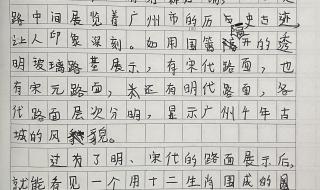 路中间展览着广州市的历史古迹
让人印象深刻。如用国篱开的透
明玻璃路基展示，有宋代路面，也
有宋元路面，未还有明代路面，各
代路面层次分明，显示广州千年古
城的风貌。
过为了明、宋代的路面展示后，
就能看见一个用十二生肖围成的圆